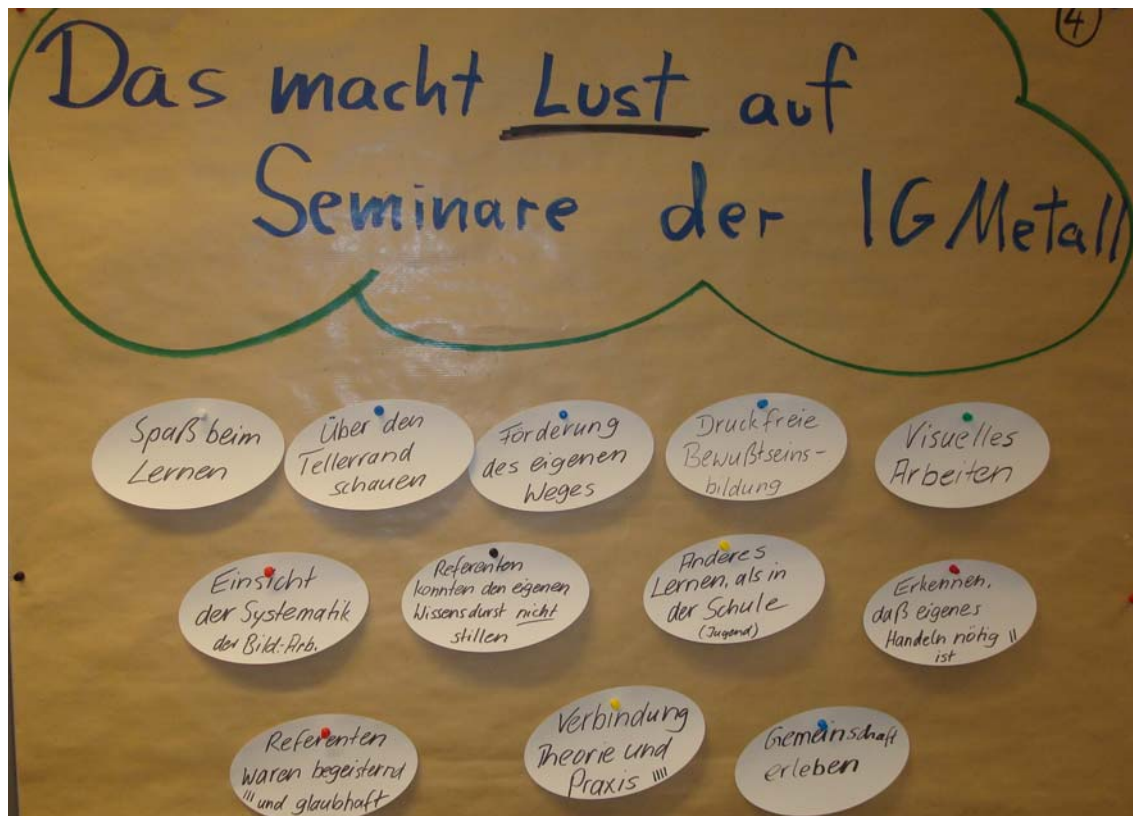 4
Das macht Lust auf
Seminare der IG Metall
Spaß beim
Lernen
Über den
Tellerrand
schauen
Förderung
des eigenen
Weges
Druckfreie
Bewußtseins-
bildung
Visuelles
Arbeiten
Einsicht
der Systematik
der Bild.-Arb.
Referenten
konnten den eigenen
Wissensdurst nicht
stillen
Anderes
Lernen, als in
der Schule
(Jugend)
Erkennen,
daß eigenes
Handeln nötig II
ist
Referenten
waren begeisternd
III und glaubhaft
Verbindung
Theorie und
Praxis IIII
Gemeinschaft
erleben